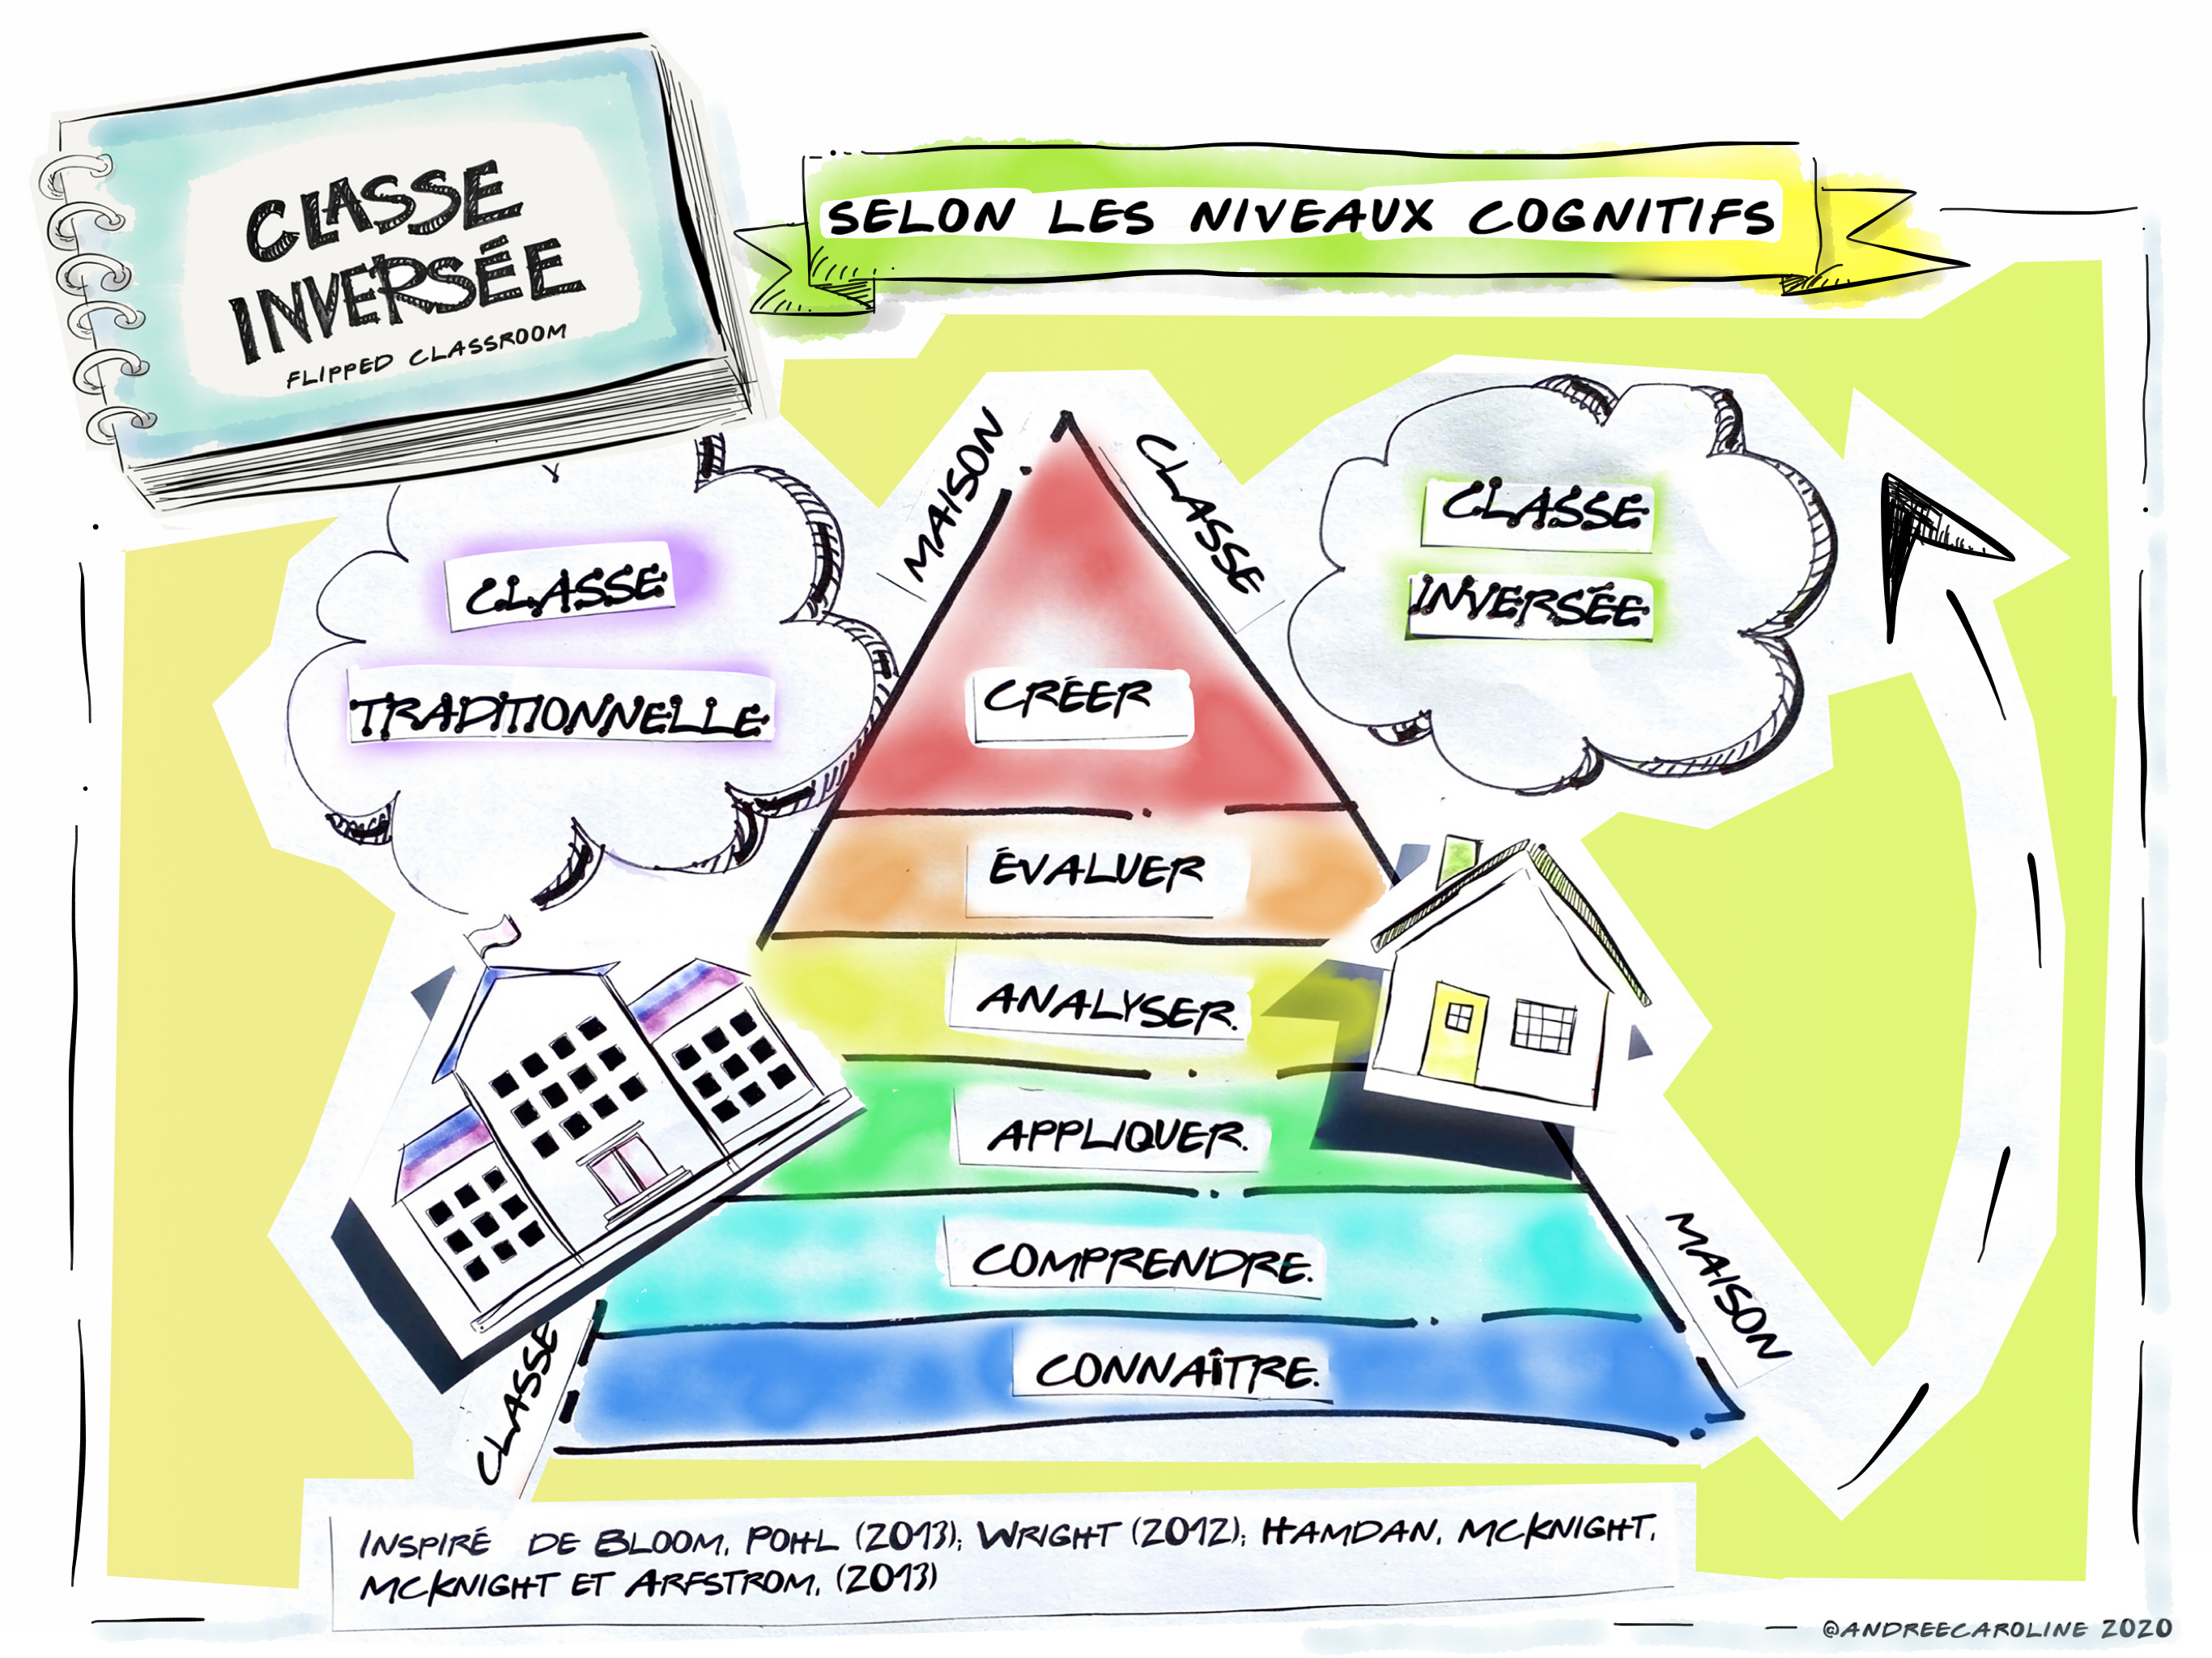 CLASSE
INVERSÉE
FLIPPED CLASSROOM
SELON LES NIVEAUX COGNITIFS
CLASSE
TRADITIONNELLE
MAISON
CLASSE
CLASSE
INVERSÉE
CRÉER
ÉVALUER
ANALYSER.
APPLIQUER.
COMPRENDRE.
CONNAÎTRE.
CLASSE
MAISON
INSPIRÉ DE BLOOM, POHL (2013); WRIGHT (2012); HAMDAN, MCKNIGHT,
MCKNIGHT ET ARFSTROM, (2013)
@ANDREECAROLINE 2020